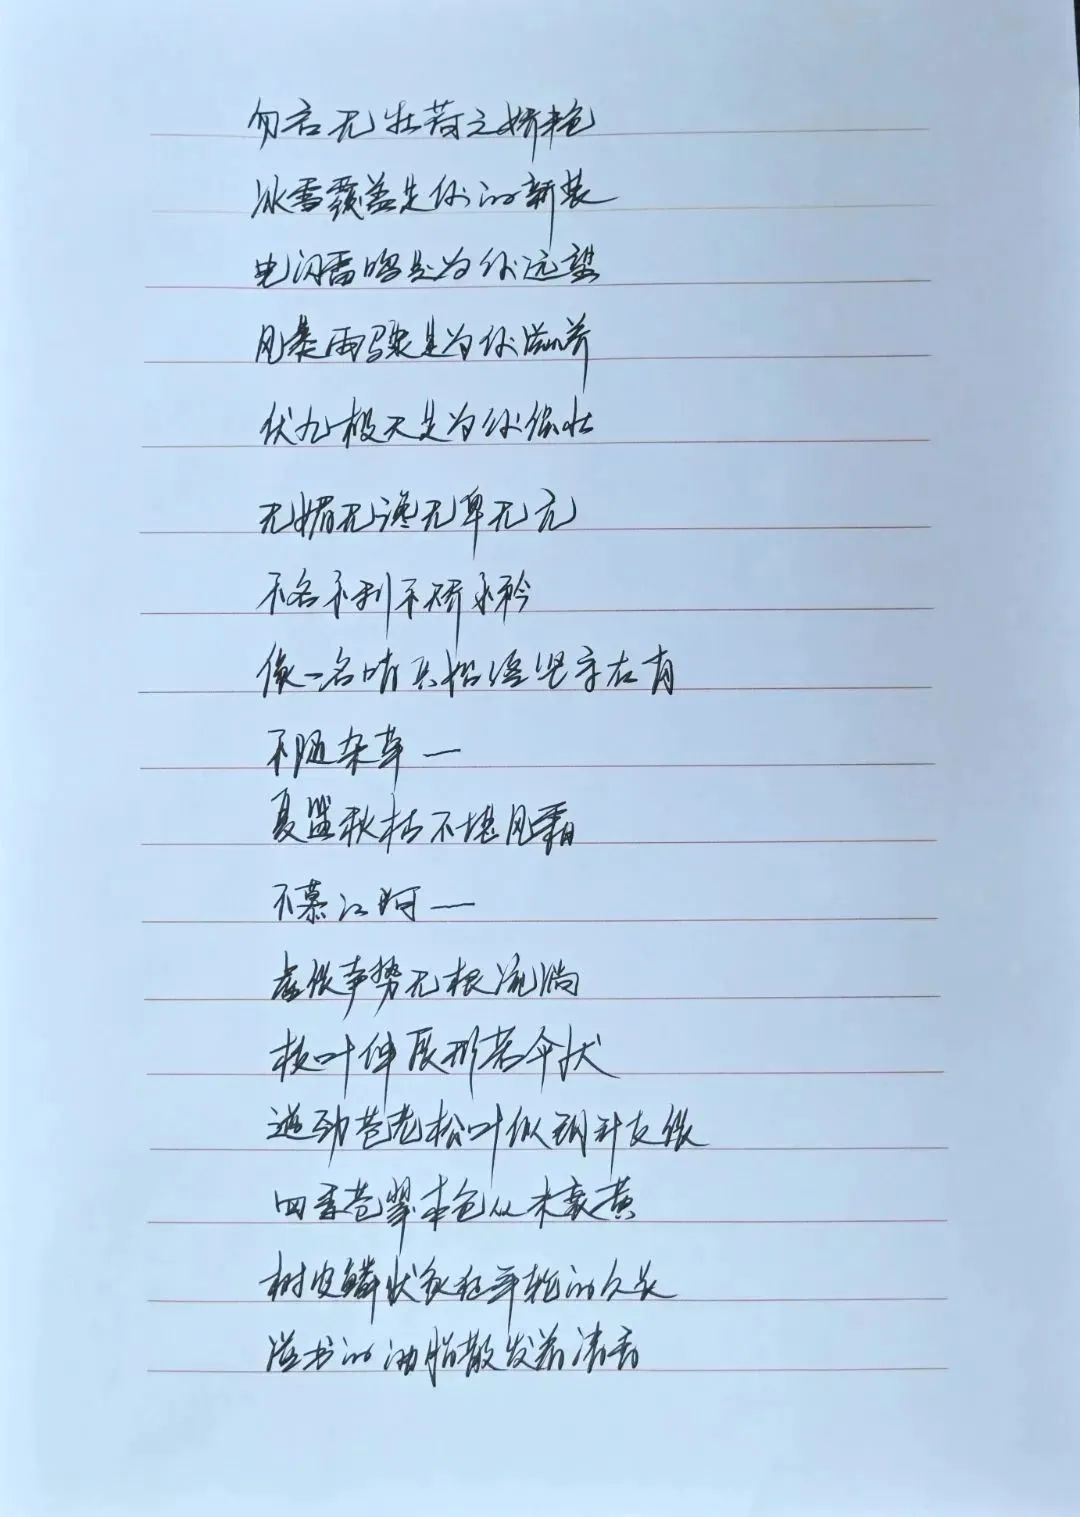 勿言无牡荷之娇艳
冰雪覆盖是你的新装
电闪雷鸣是为你远望
风暴雨骤是为你滋养
伏九极天是为你强壮
无媚无谗无卑无亢
不名不利不骄不矜
像一名哨兵始终坚守在岗
不随杂草一
夏盛秋枯不堪风霜
不慕江河一
虚张声势无根流淌
枝叶伸展形若伞状
遒劲苍老松叶似钢针支张
四季苍翠本色从未衰黄
树皮鳞状象征年轮的久长
溢出的油脂散发着清香